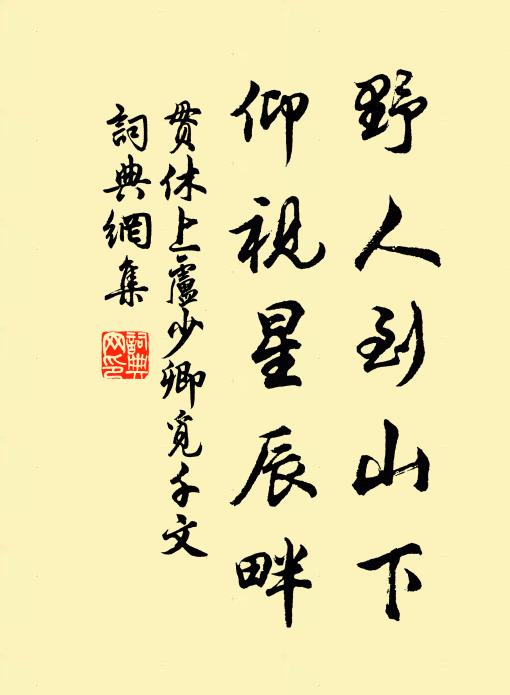 野人到山下
仰視星辰畔
貫休上盧少卿覓千文
詞典網集
詞典網印